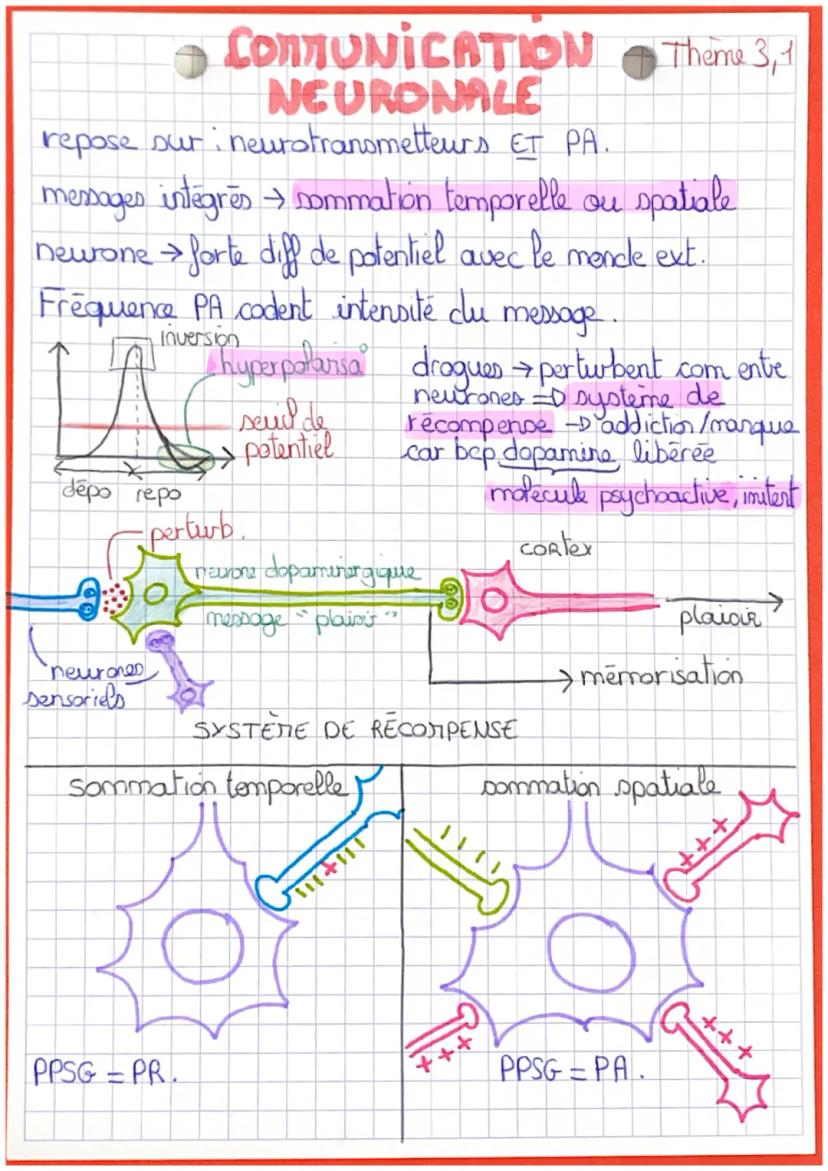 COMMUNICATION
NEURONALE
Thème 3,1
repose sur : neurotransmetteurs ET PA.
messages intégrés → sommation temporelle ou spatiale
neurone → forte diff de potentiel avec le monde ext.
Fréquence PA codent intensité du message.
inversion
hyperpolarisa°
seuil de
potentiel
dépo repo
drogues → perturbent com entre
neurones => système de
récompense → addiction/manque
car bcp dopamine libérée
molécule psychoactive, imitent
perturb.
neurone dopaminergique
message "plaisir"
cortex
plaisir
mémorisation
neurones
sensoriels
SYSTÈME DE RÉCOMPENSE
sommation temporelle
sommation spatiale
PPSG = PR.
PPSG = PA.